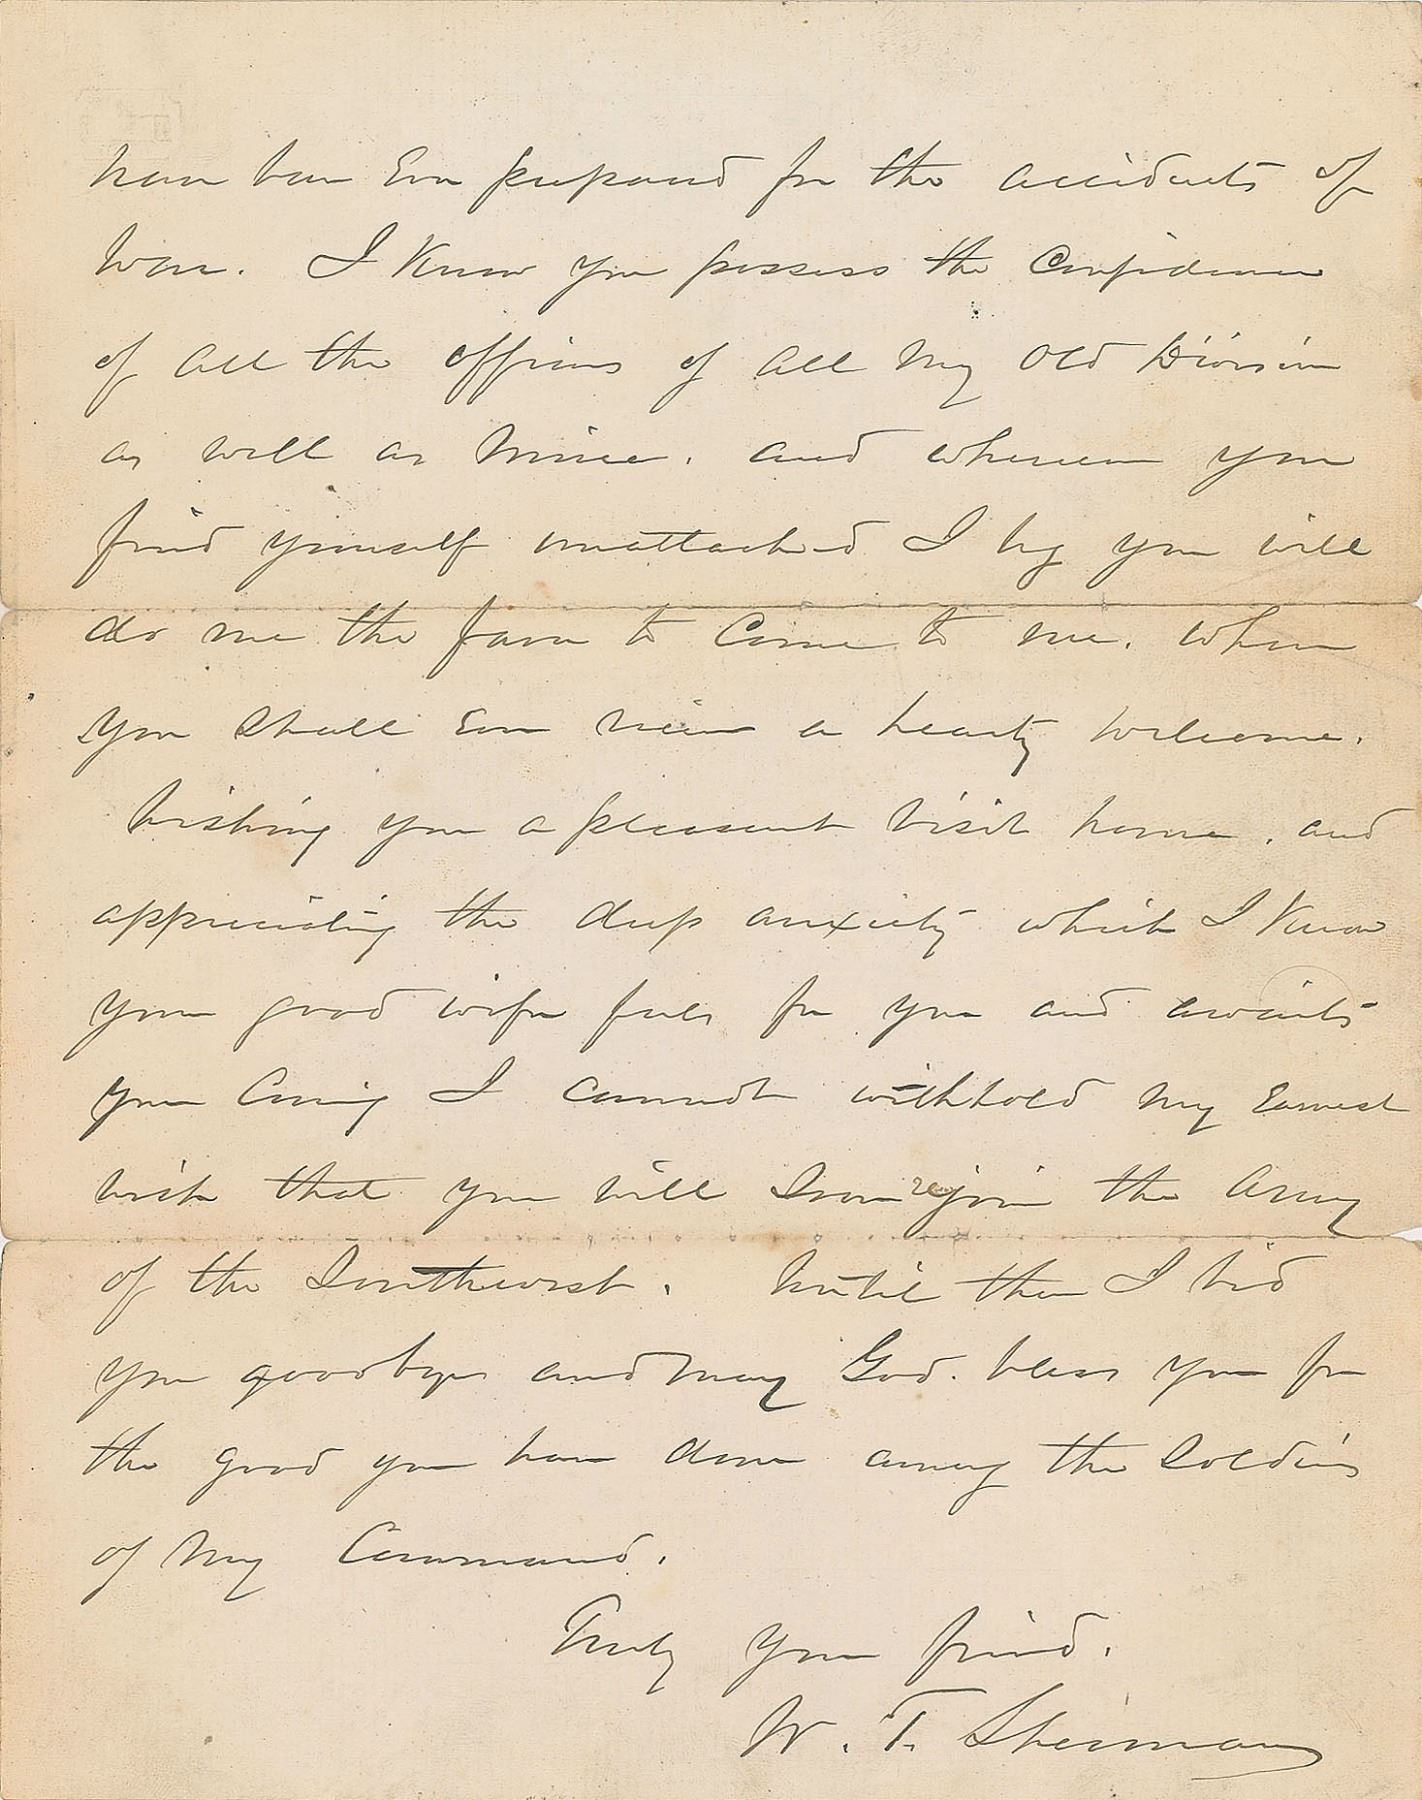 have been Ever prepared for the accidents of
War. I Know you possess the Confidence
of all the officers of all my old Division
as well as mine. and whenever you
find yourself unattached I beg you will
do me the favor to Come to me. when
you shall Ever receive a hearty welcome.
Wishing you a pleasant visit home, and
appreciating the deep anxiety which I Know
your good wife feels for you and awaits
your Coming I cannot withhold my Earnest
wish that you will Soon rejoin the Army
of the Southwest. Until then I bid
you goodbye and may God. bless you for
the good you have done among the Soldiers
of my Command.
Truly your friend.
W. T. Sherman